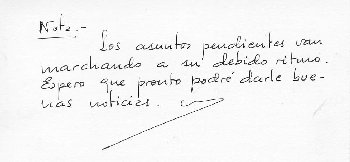 Nota:-
Los asuntos pendientes van
marchando a su debido ritmo.
Espero que pronto podré darle bue-
nas noticias.